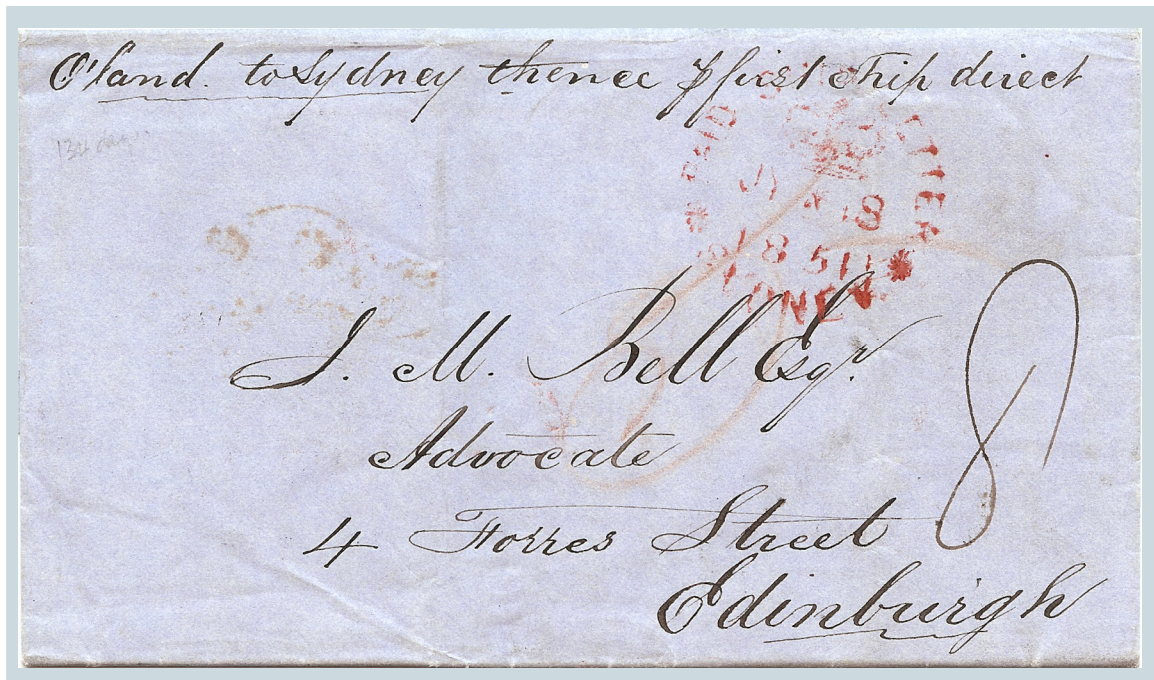 O'land. to Sydney thence p first Ship direct
PAID SHIP LETTER
JY 8
1851
SYDNEY
J. M. Bell Esqr.
Advocate
8
4 Forres Street
Edinburgh